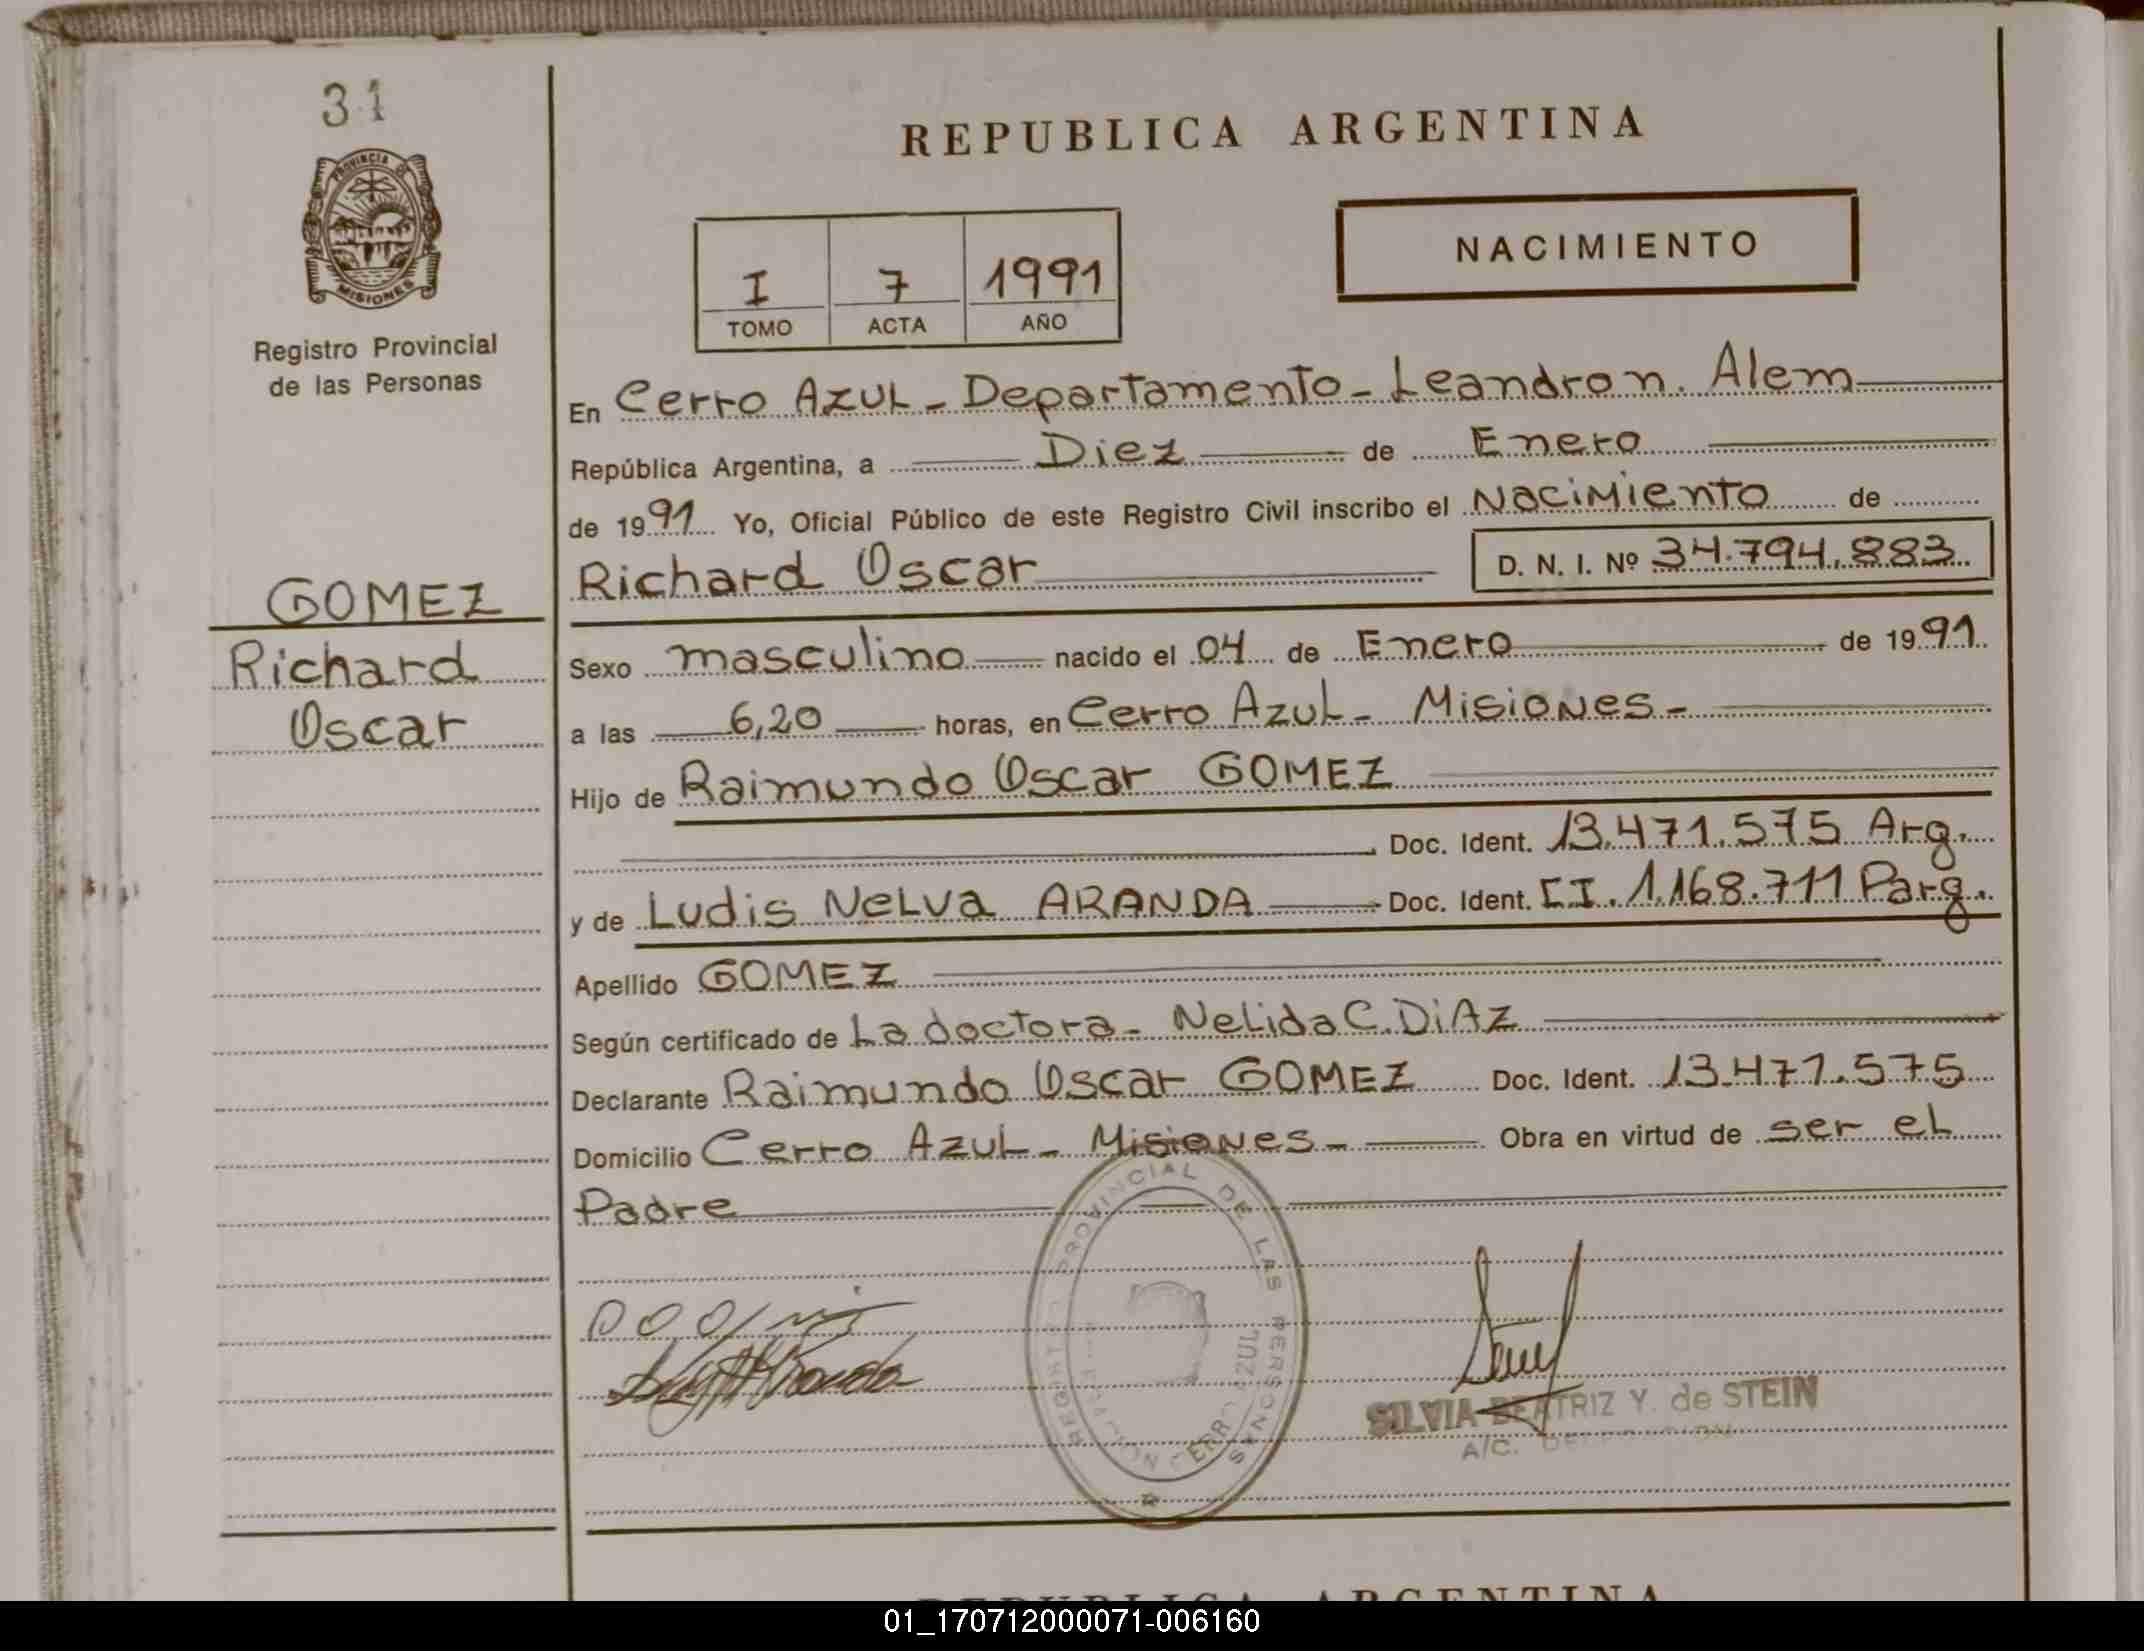 31
PROVINCIA DE
MISIONES
Registro Provincial
de las Personas
GOMEZ
Richard
Oscar
REPUBLICA ARGENTINA
I 7 1991
TOMO ACTA AÑO
NACIMIENTO
En Cerro Azul - Departamento - Leandro n. Alem
República Argentina, a Diez de Enero
de 1991 Yo, Oficial Público de este Registro Civil inscribo el Nacimiento de
Richard Oscar D. N. I. Nº 34.794.883
Sexo masculino nacido el 04 de Enero de 1991
a las 6,20 horas, en Cerro Azul - Misiones -
Hijo de Raimundo Oscar GOMEZ
Doc. Ident. 13.471.575 Arg.
y de Ludis Nelva ARANDA Doc. Ident. CI. 1.168.711 Parg.
Apellido GOMEZ
Según certificado de La doctora - Nelida C. DiAz
Declarante Raimundo Oscar GOMEZ Doc. Ident. 13.471.575
Domicilio Cerro Azul - Misiones - Obra en virtud de ser el
Padre
REGISTRO PROVINCIAL DE LAS PERSONAS
CERRO AZUL
SILVIA BEATRIZ Y. de STEIN
A/C.
REPUBLICA ARGENTINA
01_170712000071-006160